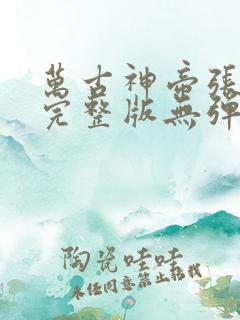 萬古神帝張
完整版無彈
陶瓷哇哇
未经同意禁止搭载